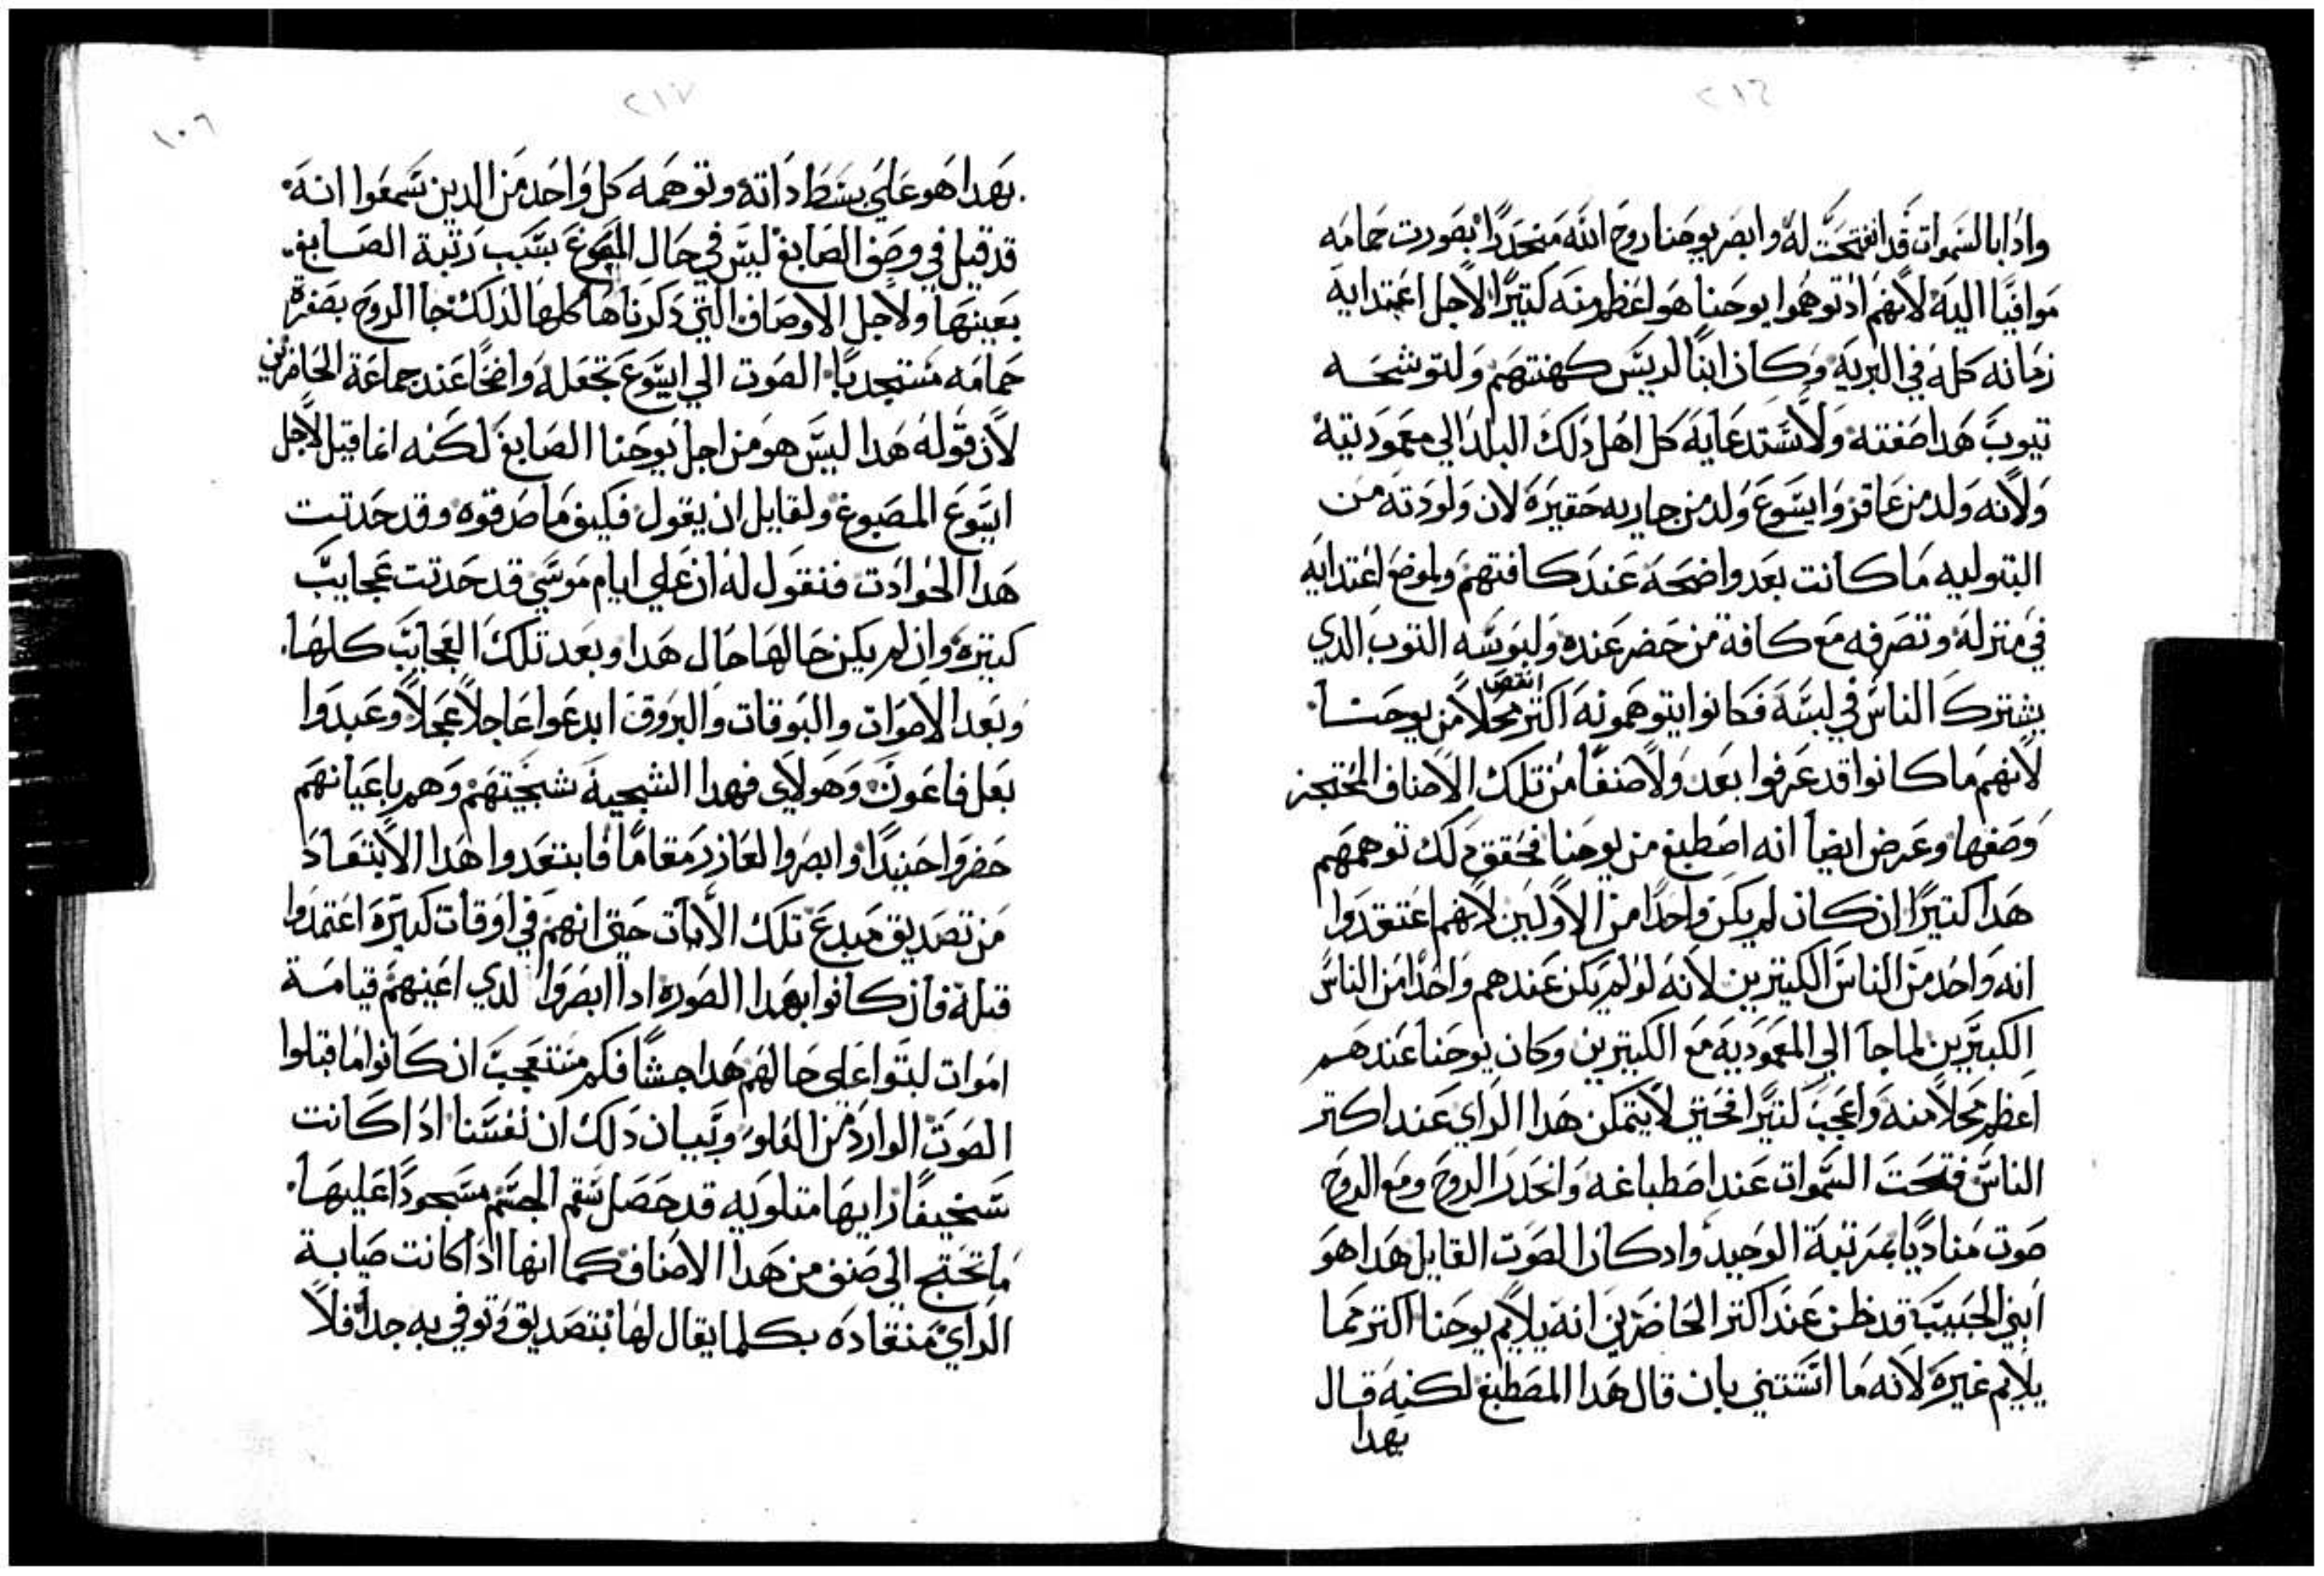 ٢١٦
وادا بالسموات قد انفتحت له وابصر يوحنا روح الله منحدرا بصورت حمامه
موافيا اليه لانهم اد توهموا يوحنا هو اعظم منه كتيرا لاجل اغتدايه
زمانه كله في البريه وكان ابنا لريس كهنتهم ولتوشحه
تيوب هدا صفته ولاستدعايه كل اهل دلك البلد الي معموديته
ولانه ولد من عاقر وايسوع ولد من جاريه حقيره لان ولودته من
البتوليه ما كانت بعد واضحه عند كافتهم ولموضع اغتدايه
في منزله وتصرفه مع كافة من حضر عنده ولبوسه التوب الدي
يشترك الناس في لبسه فكانوا يتوهمونه اكتر انقص محلا من يوحنا
لانهم ما كانوا قد عرفوا بعد ولا صنفا من تلك الاصناف المحتجز
وصفها وعرض ايضا انه اصطبغ من يوحنا فحقق دلك توهمهم
هدا كتيرا ان كان لم يكن واحدا من الاولين لانهم اعتقدوا
انه واحد من الناس الكتيرين لانه لو لم يكن عندهم واحدا من الناس
الكتيرين لما جا الي المعموديه مع الكتيرين وكان يوحنا عندهم
اعظم محلا منه واعجب كتيرا فحتي لا يتمكن هدا الراي عند اكتر
الناس فتحت السموات عند اصطباغه وانحدر الروح ومع الروح
صوت مناديا بمرتبة الوحيد واد كان الصوت القايل هدا هو
ابني الحبيب قد ظن عند اكتر الحاضرين انه يلايم يوحنا اكتر مما
يلايم غيره لانه ما استتني بان قال هدا المصطبغ لكنه قال
بهدا
٢١٧
١٠٦
بهدا هو علي بسط داته وتوهمه كل واحد من الدين سمعوا انه
قد قيل في وصف الصابغ ليس في حال المصبوغ بسبب رتبة الصابغ
بعينها ولاجل الاوصاف التي دكرناها كلها لدلك جا الروح بصفرة
حمامه مستجدبا الصوت الي ايسوع تجعله واضحا عند جماعة الحاضرين
لان قوله هدا ليس هو من اجل يوحنا الصابغ لكنه انما قيل لاجل
ايسوع المصبوغ ولقايل ان يقول فكيف ما صدقوه وقد حدتت
هدا الحوادت فنقول له ان علي ايام موسي قد حدتت عجايب
كتيره وان لم يكن حالها حال هدا وبعد تلك العجايب كلها
وبعد الاصوات والبوقات والبروق ابدعوا عاجلا عجلا وعبدوا
بعل فاغور وهولاي فهدا الشجية شجيتهم وهم باعيانهم
حضروا حينيدا وابصروا لعازر مقاما فابتعدوا هدا الابتعاد
من تصديق مبدع تلك الايات حتي انهم في اوقات كتيره اعتمدوا
قتله فان كانوا بهدا الصوره ادا ابصروا لدي اعينهم قيامة
اموات لبتوا علي حالهم هدا جشا فكم متعجب ان كانوا ما قبلوا
الصوت الوارد من العلو وبيان دلك ان نفسنا ادا كانت
سخيفا رايها متلويه قد حصل سقم الجسم مسجودا عليها
ما تحتج الي صنف من هدا الاصناف كما انها ادا كانت صايبة
الراي منقاده بكلما يقال لها بتصديق وتوفي به جدا فلا